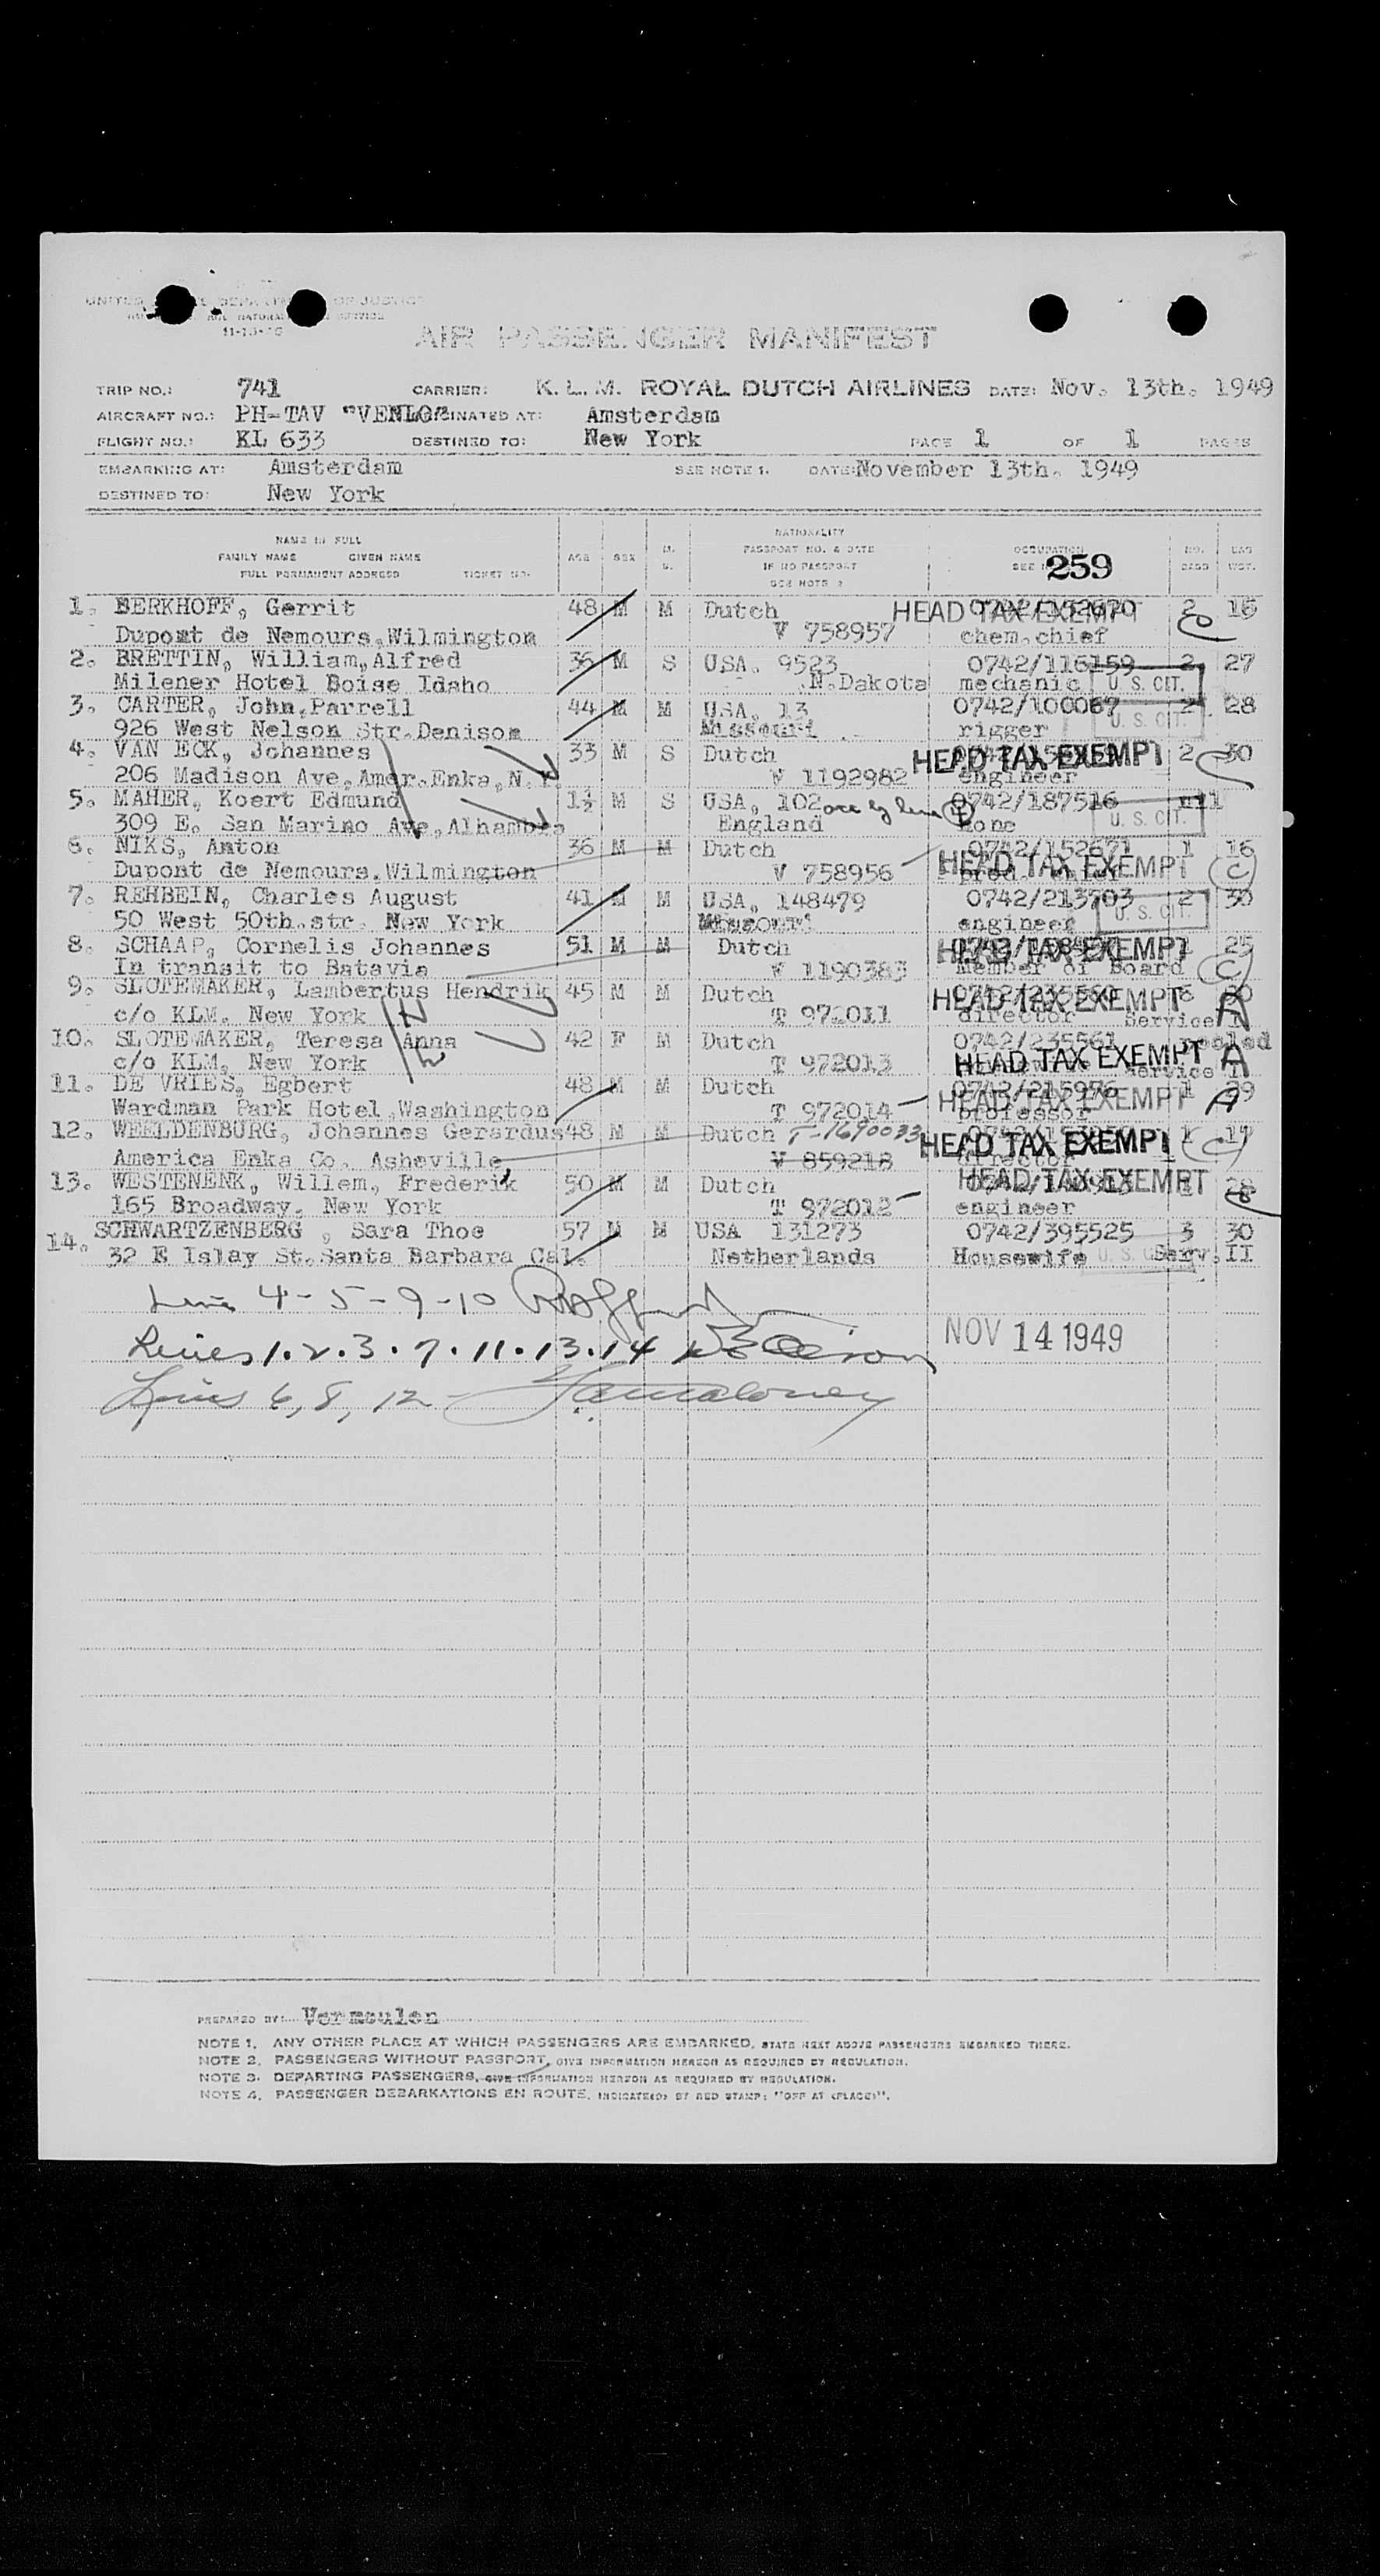 AIR PASSENGER MANIFEST
TRIP NO.: 741 CARRIER: K.L.M. ROYAL DUTCH AIRLINES DATE: Nov. 13th. 1949
AIRCRAFT NO.: PH-TAV "VENLO" AT: Amsterdam
FLIGHT NO.: KL 633 DESTINED TO: New York PAGE 1 OF 1 PAGES
EMBARKING AT: Amsterdam SEE NOTE 1. DATE: November 13th. 1949
DESTINED TO: New York
NAME IN FULL
FAMILY NAME GIVEN NAME
FULL PERMANENT ADDRESS TICKET NO.
AGE SEX M. S.
NATIONALITY
PASSPORT NO. & DATE
IF NO PASSPORT
SEE NOTE 2
OCCUPATION
259
1. BERKHOFF, Gerrit 48 M M Dutch HEAD TAX EXEMPT 2 16
Dupont de Nemours, Wilmington V 758957 chem. chief
2. BRETTIN, William, Alfred 36 M S USA. 9523 0742/116159 2 27
Milener Hotel Boise Idaho N. Dakota mechanic U. S. CIT.
3. CARTER, John, Parrell 44 M M USA, 13 0742/100067 2 28
926 West Nelson Str. Denison Missouri rigger U. S. CIT.
4. VAN ECK, Johannes 33 M S Dutch HEAD TAX EXEMPT 2 30
206 Madison Ave, Amer. Enka, N.Y. V 1192982 engineer
5. MAHER, Koert Edmund 1½ M S USA, 102 0742/187516 nil
309 E. San Marino Ave, Alhambra England None U. S. CIT.
6. NIKS, Anton 36 M M Dutch 0742/152671 1 16
Dupont de Nemours. Wilmington V 758956 HEAD TAX EXEMPT
7. REHBEIN, Charles August 41 M M USA, 148479 0742/213703 2 30
50 West 50th. str. New York Missouri engineer U. S. CIT.
8. SCHAAP, Cornelis Johannes 51 M M Dutch HEAD TAX EXEMPT 1 25
In transit to Batavia V 1190383 Member of Board
9. SLOTEMAKER, Lambertus Hendrik 45 M M Dutch HEAD TAX EXEMPT
c/o KLM. New York T 972011 director Service
10. SLOTEMAKER, Teresa Anna 42 F M Dutch 0742/235561 pooled
c/o KLM, New York T 972013 HEAD TAX EXEMPT
11. DE VRIES, Egbert 48 M M Dutch 0742/215976 1 29
Wardman Park Hotel, Washington T 972014 HEAD TAX EXEMPT professor
12. WEELDENBURG, Johannes Gerardus 48 M M Dutch T-1690033 HEAD TAX EXEMPT 1 17
America Enka Co. Asheville V 859218 director
13. WESTENENK, Willem, Frederik 50 M M Dutch HEAD TAX EXEMPT
165 Broadway, New York T 972012 engineer
14. SCHWARTZENBERG, Sara Thoe 57 M M USA 131273 0742/395525 3 30
32 E Islay St. Santa Barbara Cal. Netherlands Housewife Serv. II
Line 4-5-9-10
Lines 1.2.3.7.11.13.14
NOV 14 1949
Lines 6, 8, 12
PREPARED BY: Vermeulen
NOTE 1. ANY OTHER PLACE AT WHICH PASSENGERS ARE EMBARKED, STATE NEXT ABOVE PASSENGERS EMBARKED THERE.
NOTE 2. PASSENGERS WITHOUT PASSPORT, GIVE INFORMATION HEREON AS REQUIRED BY REGULATION.
NOTE 3. DEPARTING PASSENGERS, GIVE INFORMATION HEREON AS REQUIRED BY REGULATION.
NOTE 4. PASSENGER DEBARKATIONS EN ROUTE, INDICATE(D) BY RED STAMP: "OFF AT (PLACE)".